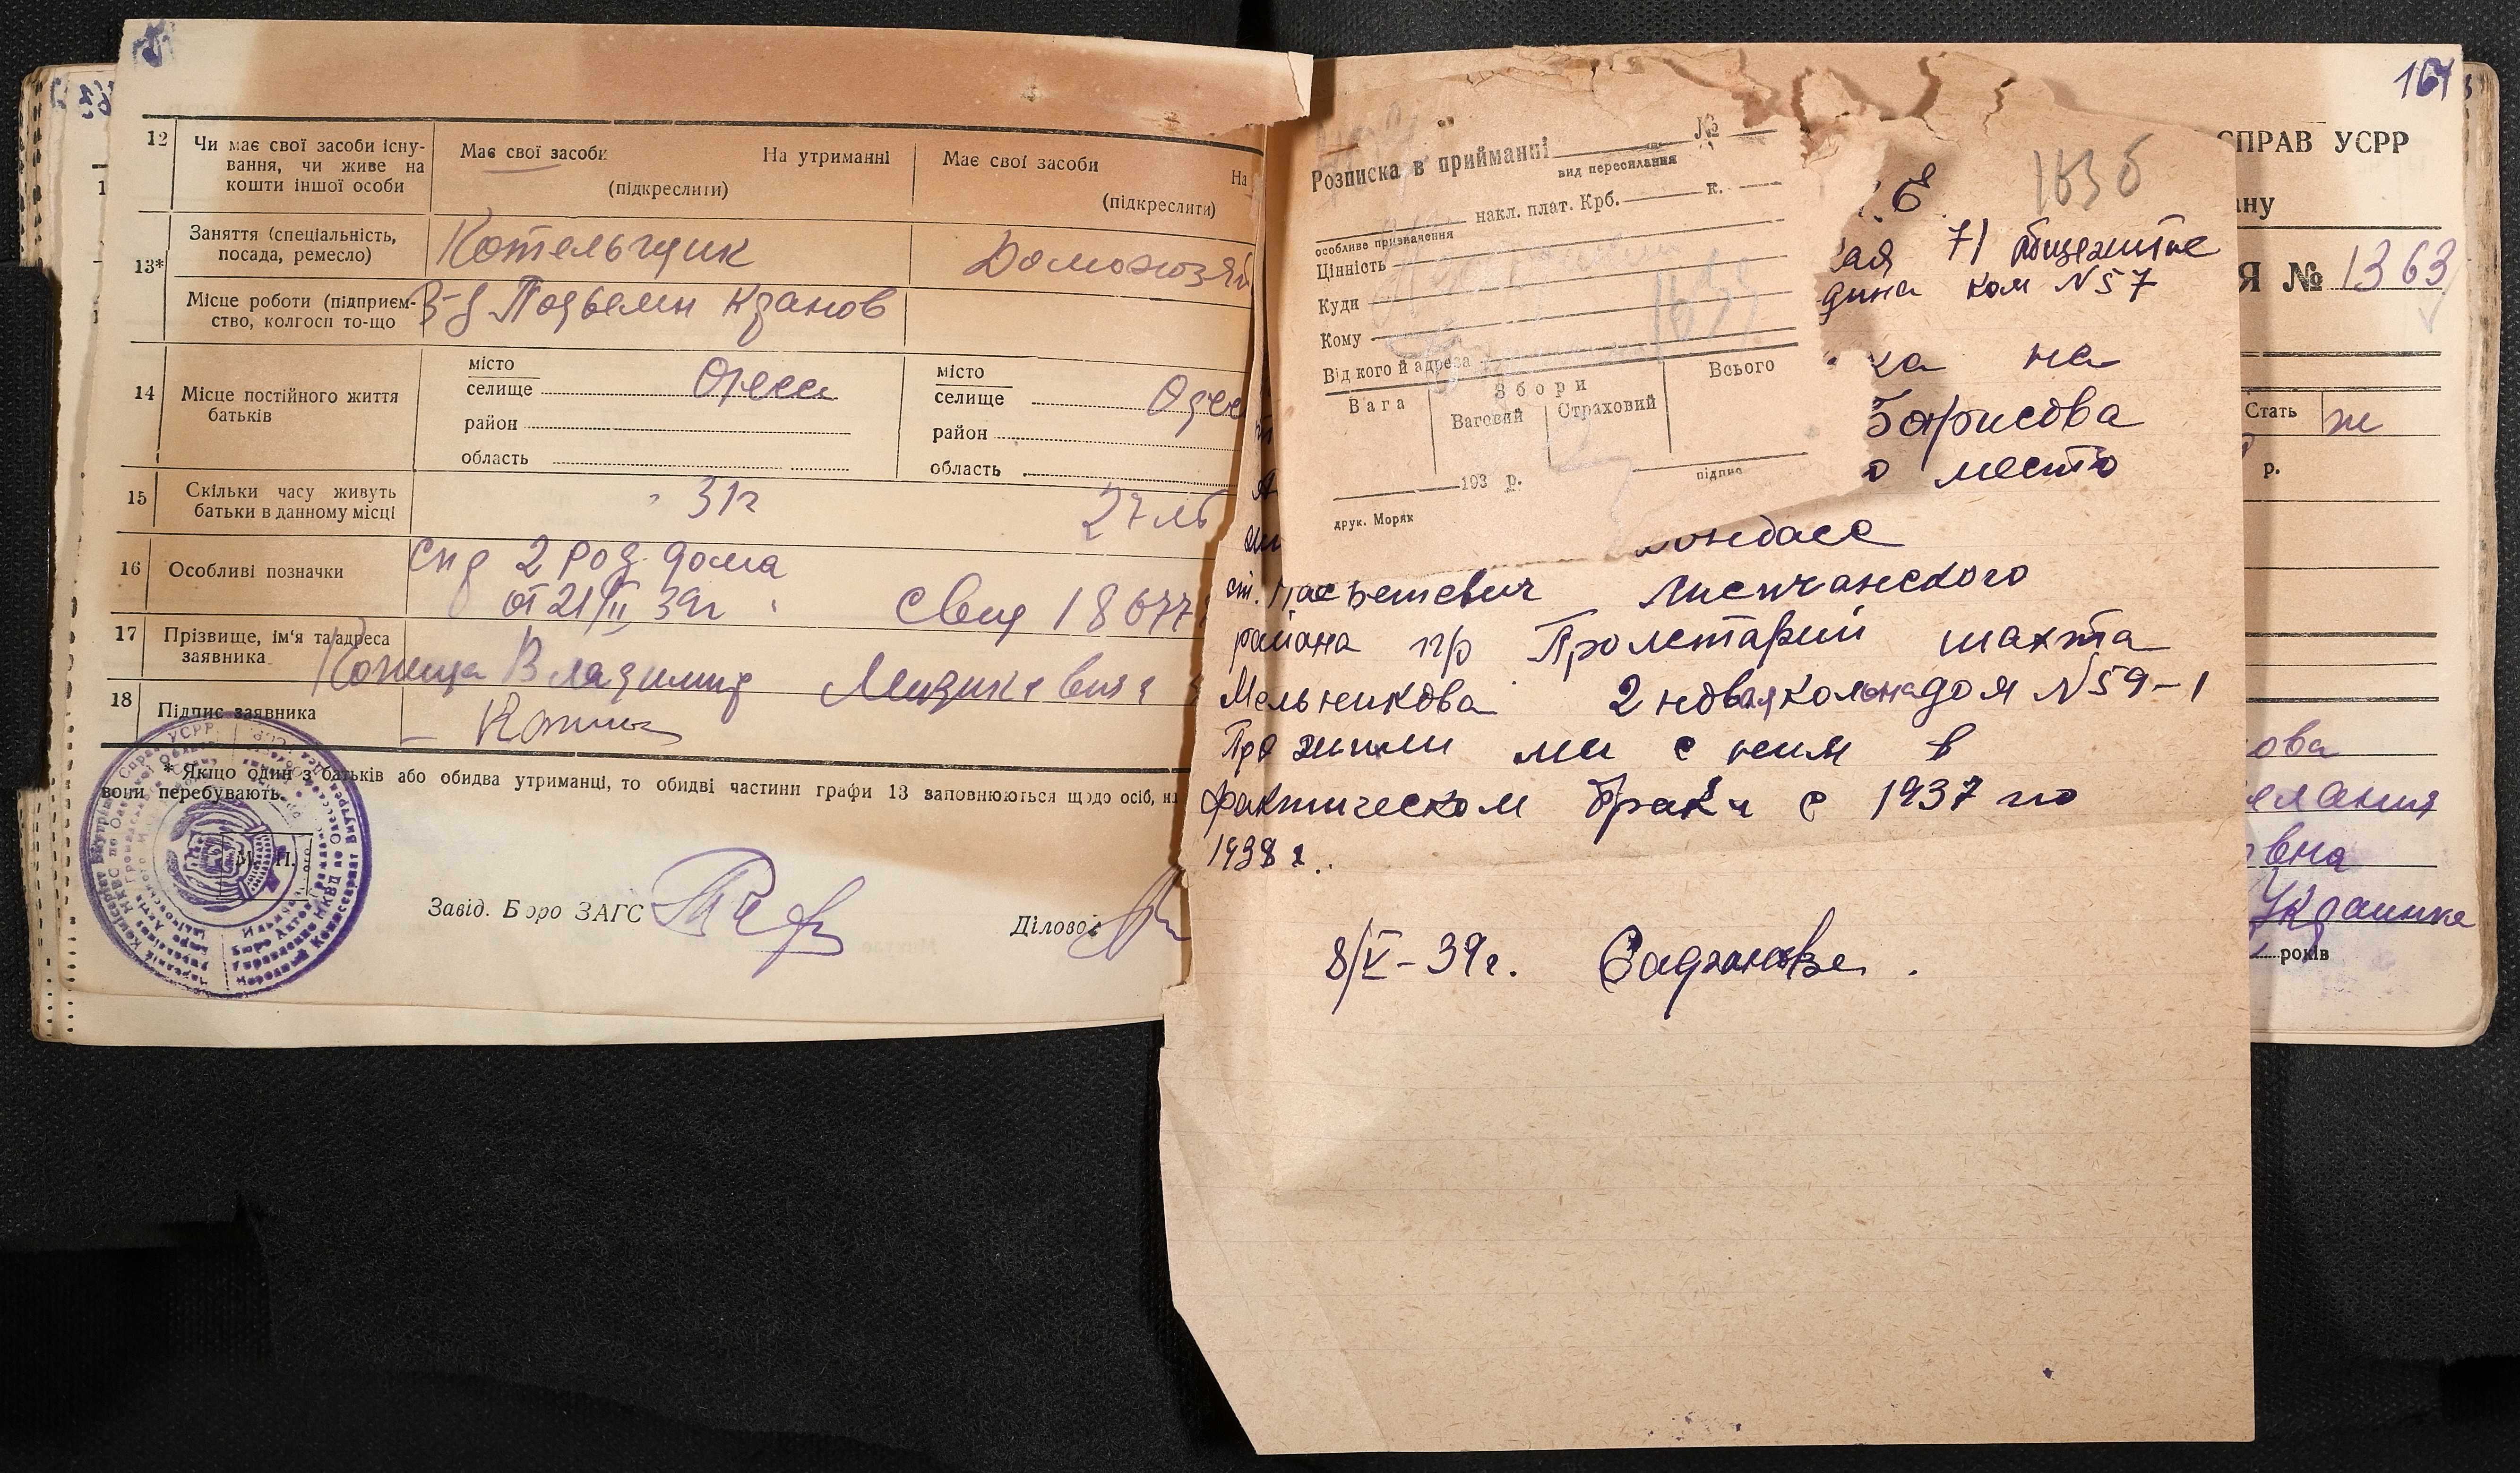 12
Чи має свої засоби існу-
вання, чи живе на
кошти іншої особи
Має свої засоби
На утриманні
(підкреслити)
Має свої засоби
На
(підкреслити)
13*
Заняття (спеціальність,
посада, ремесло)
Котельщик
Домохозяй
Місце роботи (підприєм-
ство, колгосп то-що
З-д Подъемн кранов
14
Місце постійного життя
батьків
місто
селище
Одесса
район
область
місто
селище
Одесс
район
область
15
Скільки часу живуть
батьки в данному місці
31г
27 лет
16
Особливі позначки
спр 2 род. дома
от 21/II 39г
Свид 18677
17
Прізвище, ім'я та адреса
заявника
Владимир
18
Підпис заявника
* Якщо один з батьків або обидва утриманці, то обидві частини графи 13 заповнюються щодо осіб, на
вони перебувають.
М. П.
Завід. Бюро ЗАГС
Діловод
161
Розписка в прийманні
№
вид пересилання
накл. плат. Крб.
к.
особливе призначення
Цінність
Куди
Кому
Від кого й адреса
Вага
Збори
Ваговий
Страховий
Всього
193 р.
підпис
друк. Моряк
163б
ая 71 общежитие
дина ком N 57
ка на
Борисова
о место
Донбасс
ст. Лисичанского
района п/р Пролетарий шахта
Мельникова 2 новая колон дом N 59-1
Прожили мы с ним в
фактическом браке с 1937 по
1938 г.
8/V-39г.
СПРАВ УСРР
ану
Я № 1363
Стать
ж
р.
ова
елания
овна
Украинка
років